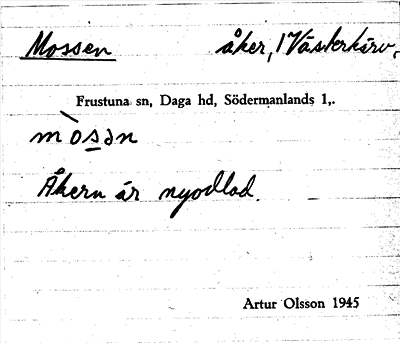 Mossen åker, 1 Västerkärv.
Frustuna sn, Daga hd, Södermanlands l,.
mòsən
Åkern är nyodlad.
Artur Olsson 1945